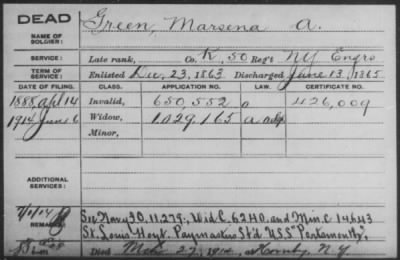 DEAD
Green, Marsena A.
NAME OF SOLDIER:
SERVICE: Late rank, Co. K, 50 Reg't NY Engrs
TERM OF SERVICE: Enlisted Dec. 23, 1863. Discharged June 13, 1865
DATE OF FILING. CLASS. APPLICATION NO. LAW. CERTIFICATE NO.
1888 Apl 14 Invalid, 650,552 426,009
1914 June 6 Widow, 1,029,165
Minor,
ADDITIONAL SERVICES:
See Navy 30,11279; Wid C. 6240, and Min. C. 14643
St. Louis Hoyt. Paymasters St'd U.S.S "Portsmouth"
Died 27, 1914 Hornby, N.Y.